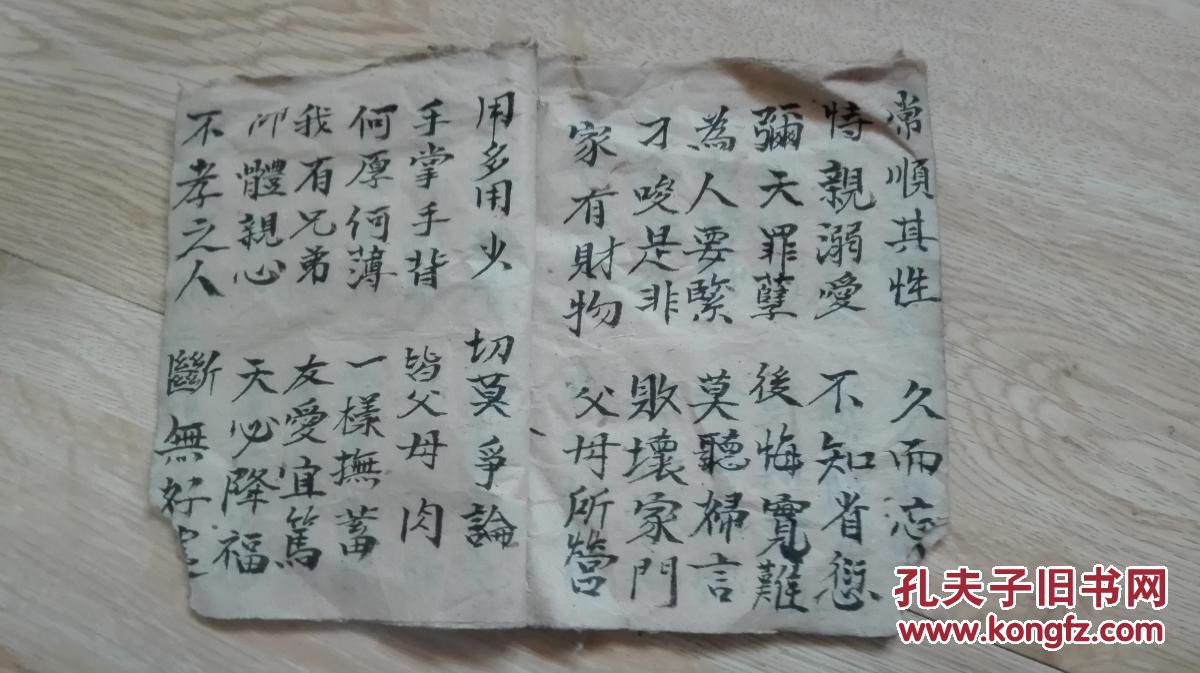 常順其性 久而忘
恃親溺愛 不知省愆
彌天罪孽 後悔實難
為人要緊 莫聽婦言
刁唆是非 敗壞家門
家有財物 父母所營
用多用少 切莫爭論
手掌手背 皆父母肉
何厚何薄 一樣撫蓄
我有兄弟 友愛宜篤
仰體親心 天必降福
不孝之人 斷無好
孔夫子旧书网
www.kongfz.com